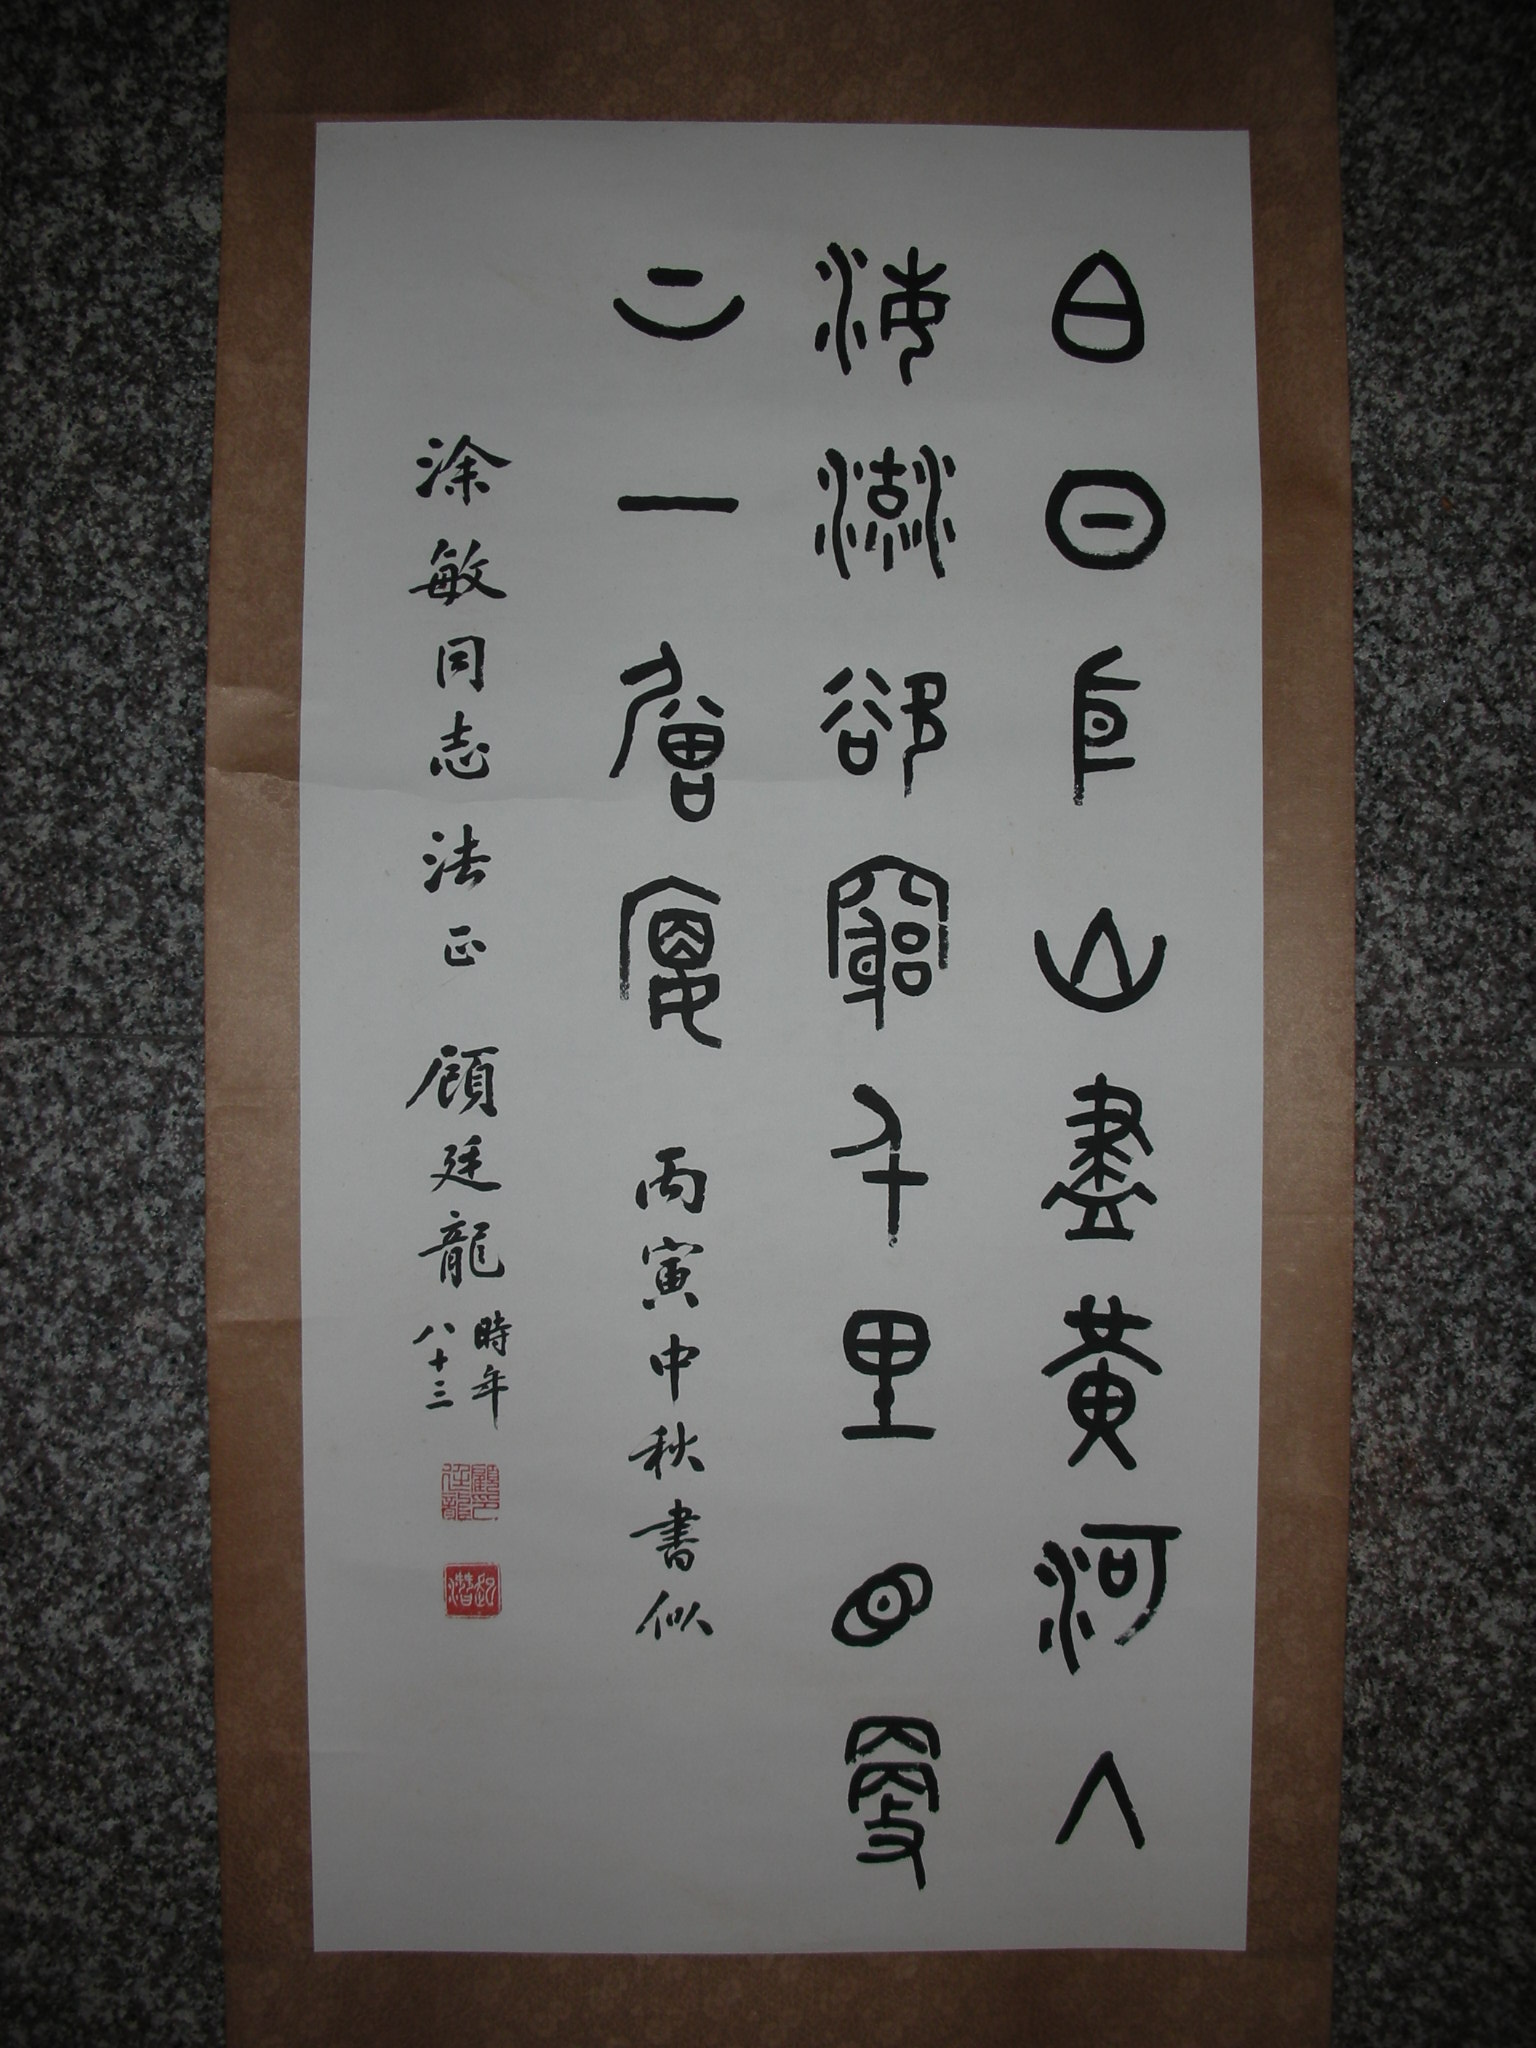 白日依山盡黃河入
海流欲窮千里目更
上一層樓 丙寅中秋書似
涂敏同志法正 顧廷龍 時年八十三
顧印廷龍
起潛